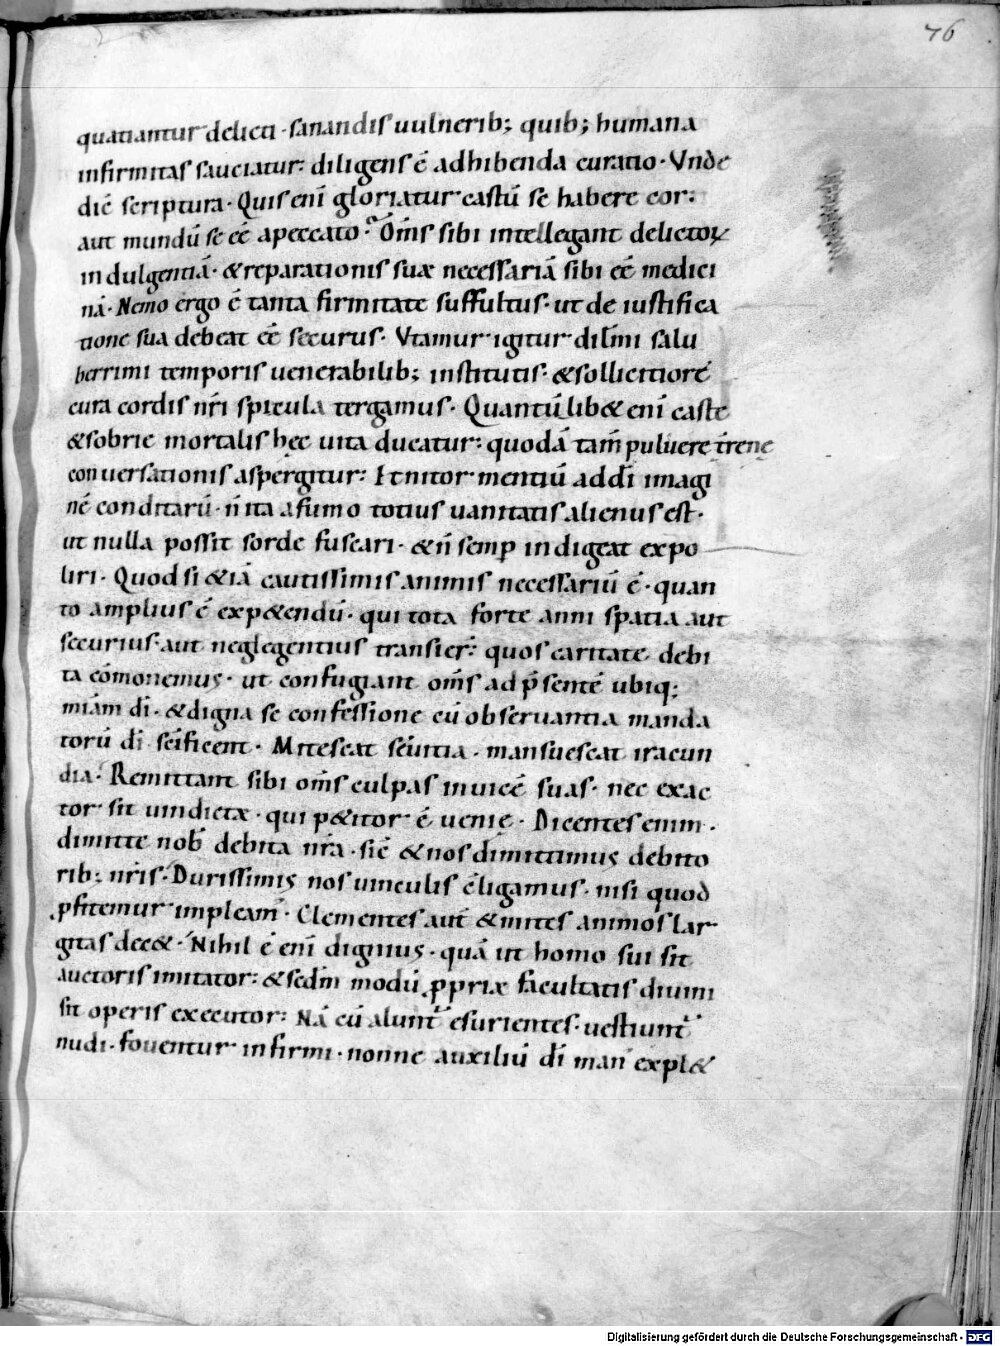 76
quatiantur delicti · sanandis uulnerib; quib; humana
infirmitas sauciatur: diligens ē adhibenda curatio · Vnde
dic̄ scriptura · Quis eni̅ gloriatur castū se habere cor:
aut mundū se eē apeccato? Om̅s sibi intellegant delictoꝝ
indulgentiā · &reparationis suæ necessariā sibi eē medici
nā · Nemo ergo ē tanta firmitate suffultus · ut de iustifica
tione sua debeat eē securus · Vtamur igitur dil̅mi salu
berrimi temporis uenerabilib; institutis · &sollicitiorē
cura cordis nr̅i spicula tergamus · Quantū lib& eni̅ caste
&sobrie mortalis hęc uita ducatur: quodā tam̅ puluere t̅renę
conuersationis aspergitur: Et nitor mentiū addi̅ imagi
nē conditarū · n̅ ita afumo totius uanitatis alienus est ·
ut nulla possit sorde fuscari · &n̅ semp̅ indigeat expo
liri · Quod si &iā cautissimis animis necessariū ē · quan
to amplius ē exp&endū · qui tota forte anni spatia aut
securius · aut neglegentius transier̅: quos caritate debi
ta cōmonemus · ut confugiant om̅s ad p̅sentē ubiq;
miām di̅ · &digna se confessione cū obseruantia manda
torū di̅ sc̅ificent · Mitescat sęuitia · mansuescat iracun
dia · Remittant sibi om̅s culpas inuicē suas · nec exac
tor sit uindictæ · qui p&itor ē uenię · Dicentes enim ·
dimitte nob̅ debita nr̅a · sic̄ &nos dimittimus debito
rib; nr̅is · Durissimis nos uinculis c̄ligamus · nisi quod
ꝓfitemur impleam̅ · Clementes aut̅ &mites animos lar
gitas dec& · Nihil ē eni̅ dignius · quā ut homo sui sit
auctoris imitator: &sed̅m modū ꝓpriæ facultatis diuini
sit operis executor: Nā cū alunt̅ esurientes · uestiunt̅
nudi · fouentur infirmi · nonne auxiliū di̅ man̅ expl&
Digitalisierung gefördert durch die Deutsche Forschungsgemeinschaft - DFG